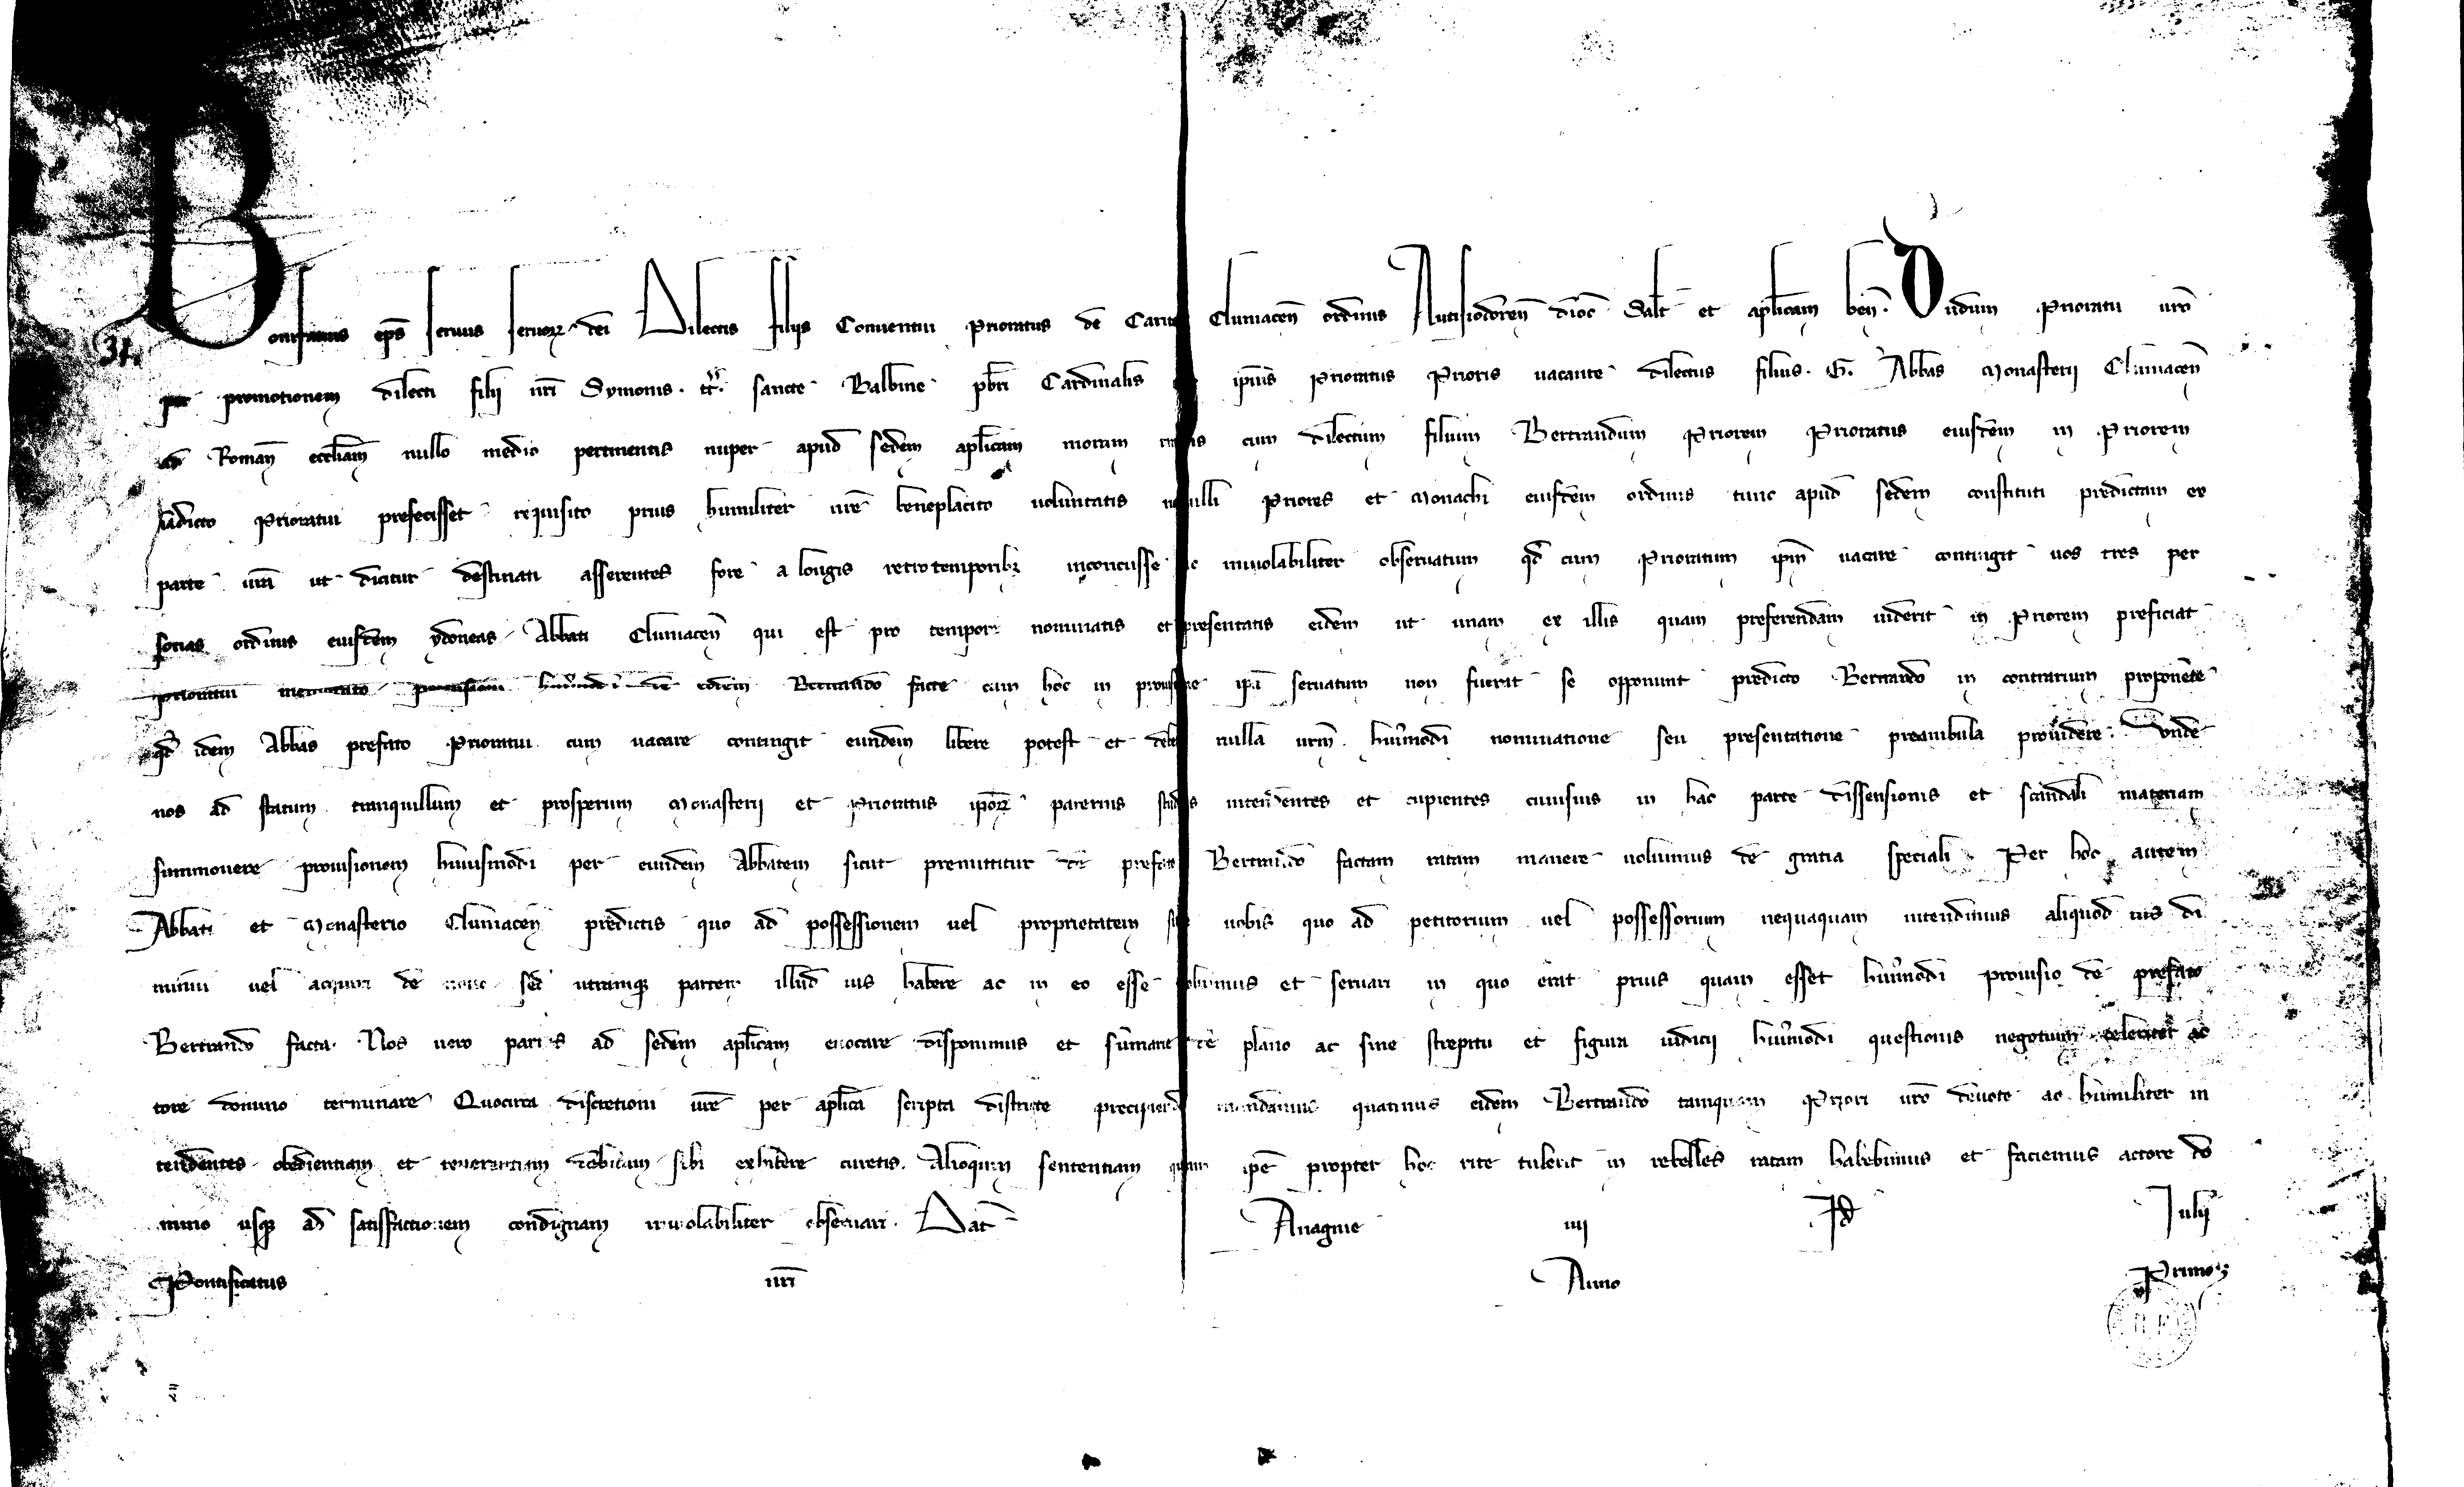 Bonifatius ep̄s seruus seruoꝝ dei Dilectis filijs Conuentui Prioratus de Carit Cluniaceñ ordinis Autisiodoreñ dioc̄ Salt̄ et apl̄icam beñ. Dudum Prioratu ur̄o
per promotionem dilecti filij nr̄i Symonis. tt̄. sancte Balbine pb̄ri Cardinalis ip̄ius Prioratus Prioris uacante dilectus filius. G. Abbas Monasterij Cluniaceñ
ad Romañ eccl̄iam nullo medio pertinentis nuper apud sedem apl̄icam moram cum dilectum filium Bertrandum Priorem Prioratus eiusdem in Priorem
Prioratui prefecisset requisito prius humiliter ur̄e beneplacito uoluntatis nonnulli Priores et Monachi eiusdem ordinis tunc apud sedem constituti predictam ex
parte ur̄a ut dicitur destinati asserentes fore a longis retro temporibꝫ inconcusse ac inuiolabiliter obseruatum qd̄ cum Prioratum ip̄m uacare contingit uos tres per
sonas ordinis eiusdem ydoneas Abbati Cluniaceñ qui est pro tempore nominatis et presentatis eidem ut unam ex illis quam preferendam uiderit in Priorem preficiat
Prioratui memorato prouisioni hui᷒modi de eodem Bertrando facte cum hoc in prouisione ip̄a seruatum non fuerit se opponunt predicto Bertrando in contrarium proponente
qd̄ idem Abbas prefato Prioratui cum uacare contingit eundem libere potest et debet nulla ur̄m hui᷒modi nominatione seu presentatione preambula prouidere. Unde
nos ad statum tranquillum et prosperum Monasterij et Prioratus ip̄oꝝ paternis studiis intendentes et cupientes cuiusuis in hac parte dissensionis et scandali materiam
summouere prouisionem huiusmodi per eundem Abbatem sicut premittitur de prefato Bertrando factam ratam manere uolumus de gratia speciali. Per hoc autem
Abbati et Monasterio Cluniaceñ predictis quo ad possessionem uel proprietatem siue uobis quo ad petitorium uel possessorium nequaquam intendimus aliquod ius di
minui uel acquiri de nouo sed utramqꝫ partem illud ius habere ac in eo esse uolumus et seruari in quo erat prius quam esset hui᷒modi prouisio de prefato
Bertrando facta. Nos uero partes ad sedem apl̄icam euocare disponimus et sum̄arie de plano ac sine strepitu et figura iudicij hui᷒modi questionis negotium celeriter ac
tore domino terminare Quocirca discretioni ur̄e per apl̄ica scripta districte precipiendo mandamus quatinus eidem Bertrando tamquam Priori ur̄o deuote ac humiliter in
tendentes obedientiam et reuerentiam debitam sibi exhibere curetis. Alioquin sententiam quam ip̄e propter hoc rite tulerit in rebelles ratam habebimus et faciemus actore do
mino usqꝫ ad satisfactionem condignam inuiolabiliter obseruari. Dat̄ Anagnie iiij Id Iulij
Pontificatus nr̄i Anno Primo